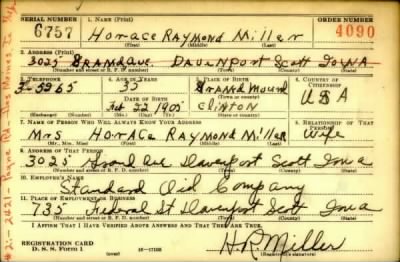 SERIAL NUMBER 1. NAME (Print) ORDER NUMBER
6757 Horace Raymond Miller 4090
(First) (Middle) (Last)
2. ADDRESS (Print)
3025 Grand Ave. Davenport Scott Iowa
(Number and street or R. F. D. number) (Town) (County) (State)
3. TELEPHONE 4. AGE IN YEARS 5. PLACE OF BIRTH 6. COUNTRY OF CITIZENSHIP
3-5965 35 Grand Mound USA
DATE OF BIRTH
Feb 22 1905 Clinton
(Exchange) (Number) (Mo.) (Day) (Yr.) (State or country)
7. NAME OF PERSON WHO WILL ALWAYS KNOW YOUR ADDRESS 8. RELATIONSHIP OF THAT PERSON
Mrs Horace Raymond Miller Wife
(Mr., Mrs., Miss) (First) (Middle) (Last)
9. ADDRESS OF THAT PERSON
3025 Grand Ave Davenport Scott Iowa
(Number and street or R. F. D. number) (Town) (County) (State)
10. EMPLOYER'S NAME
Standard Oil Company
11. PLACE OF EMPLOYMENT OR BUSINESS
735 Federal St Davenport Scott Iowa
(Number and street or R. F. D. number) (Town) (County) (State)
I AFFIRM THAT I HAVE VERIFIED ABOVE ANSWERS AND THAT THEY ARE TRUE.
REGISTRATION CARD
D. S. S. Form 1 (over) 16-17105 H.R. Miller
(Registrant's signature)
Des Moines